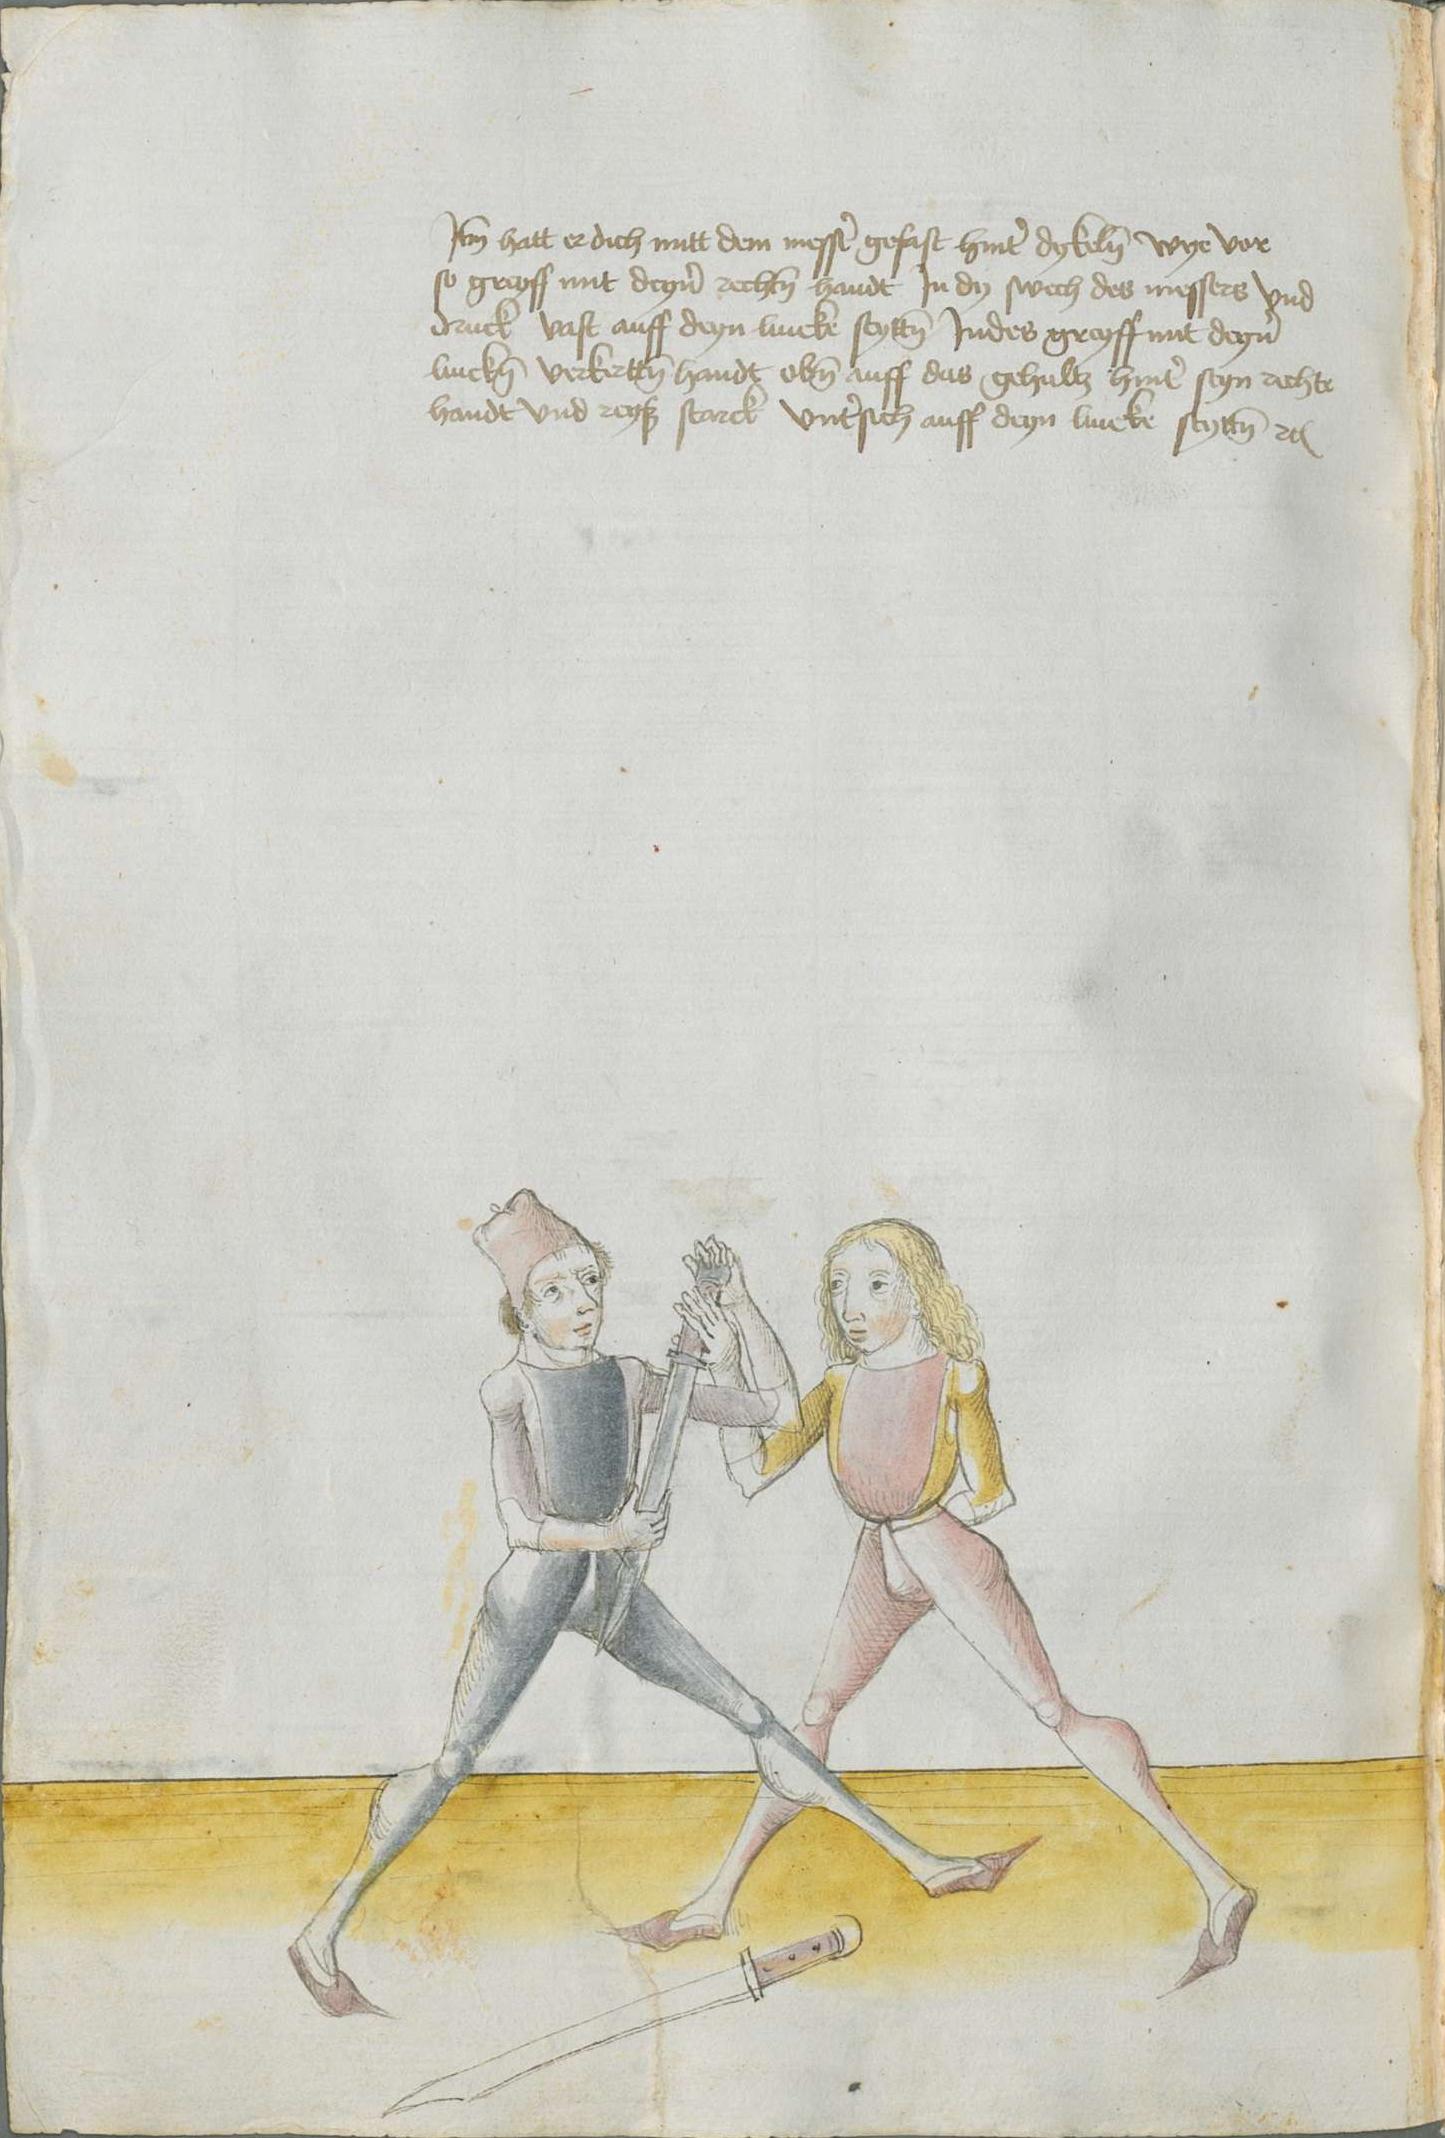 Itm̄ hatt er dich mitt dem messr̄ gefast hintr̄ dy keln̄ wye vor
so greyff mit deyn̄ rechtn̄ handt In dy swech des messers vnd
druck vast auff deyn lincke seyttn̄ Indes greyff mit deyn̄
linckn̄ verkerttn̄ handt obn̄ auff das gehultz hintr̄ seyn rechte
handt vnd reyß starck vntr̄sich auff deyn lincke seyttn̄ ꝛc